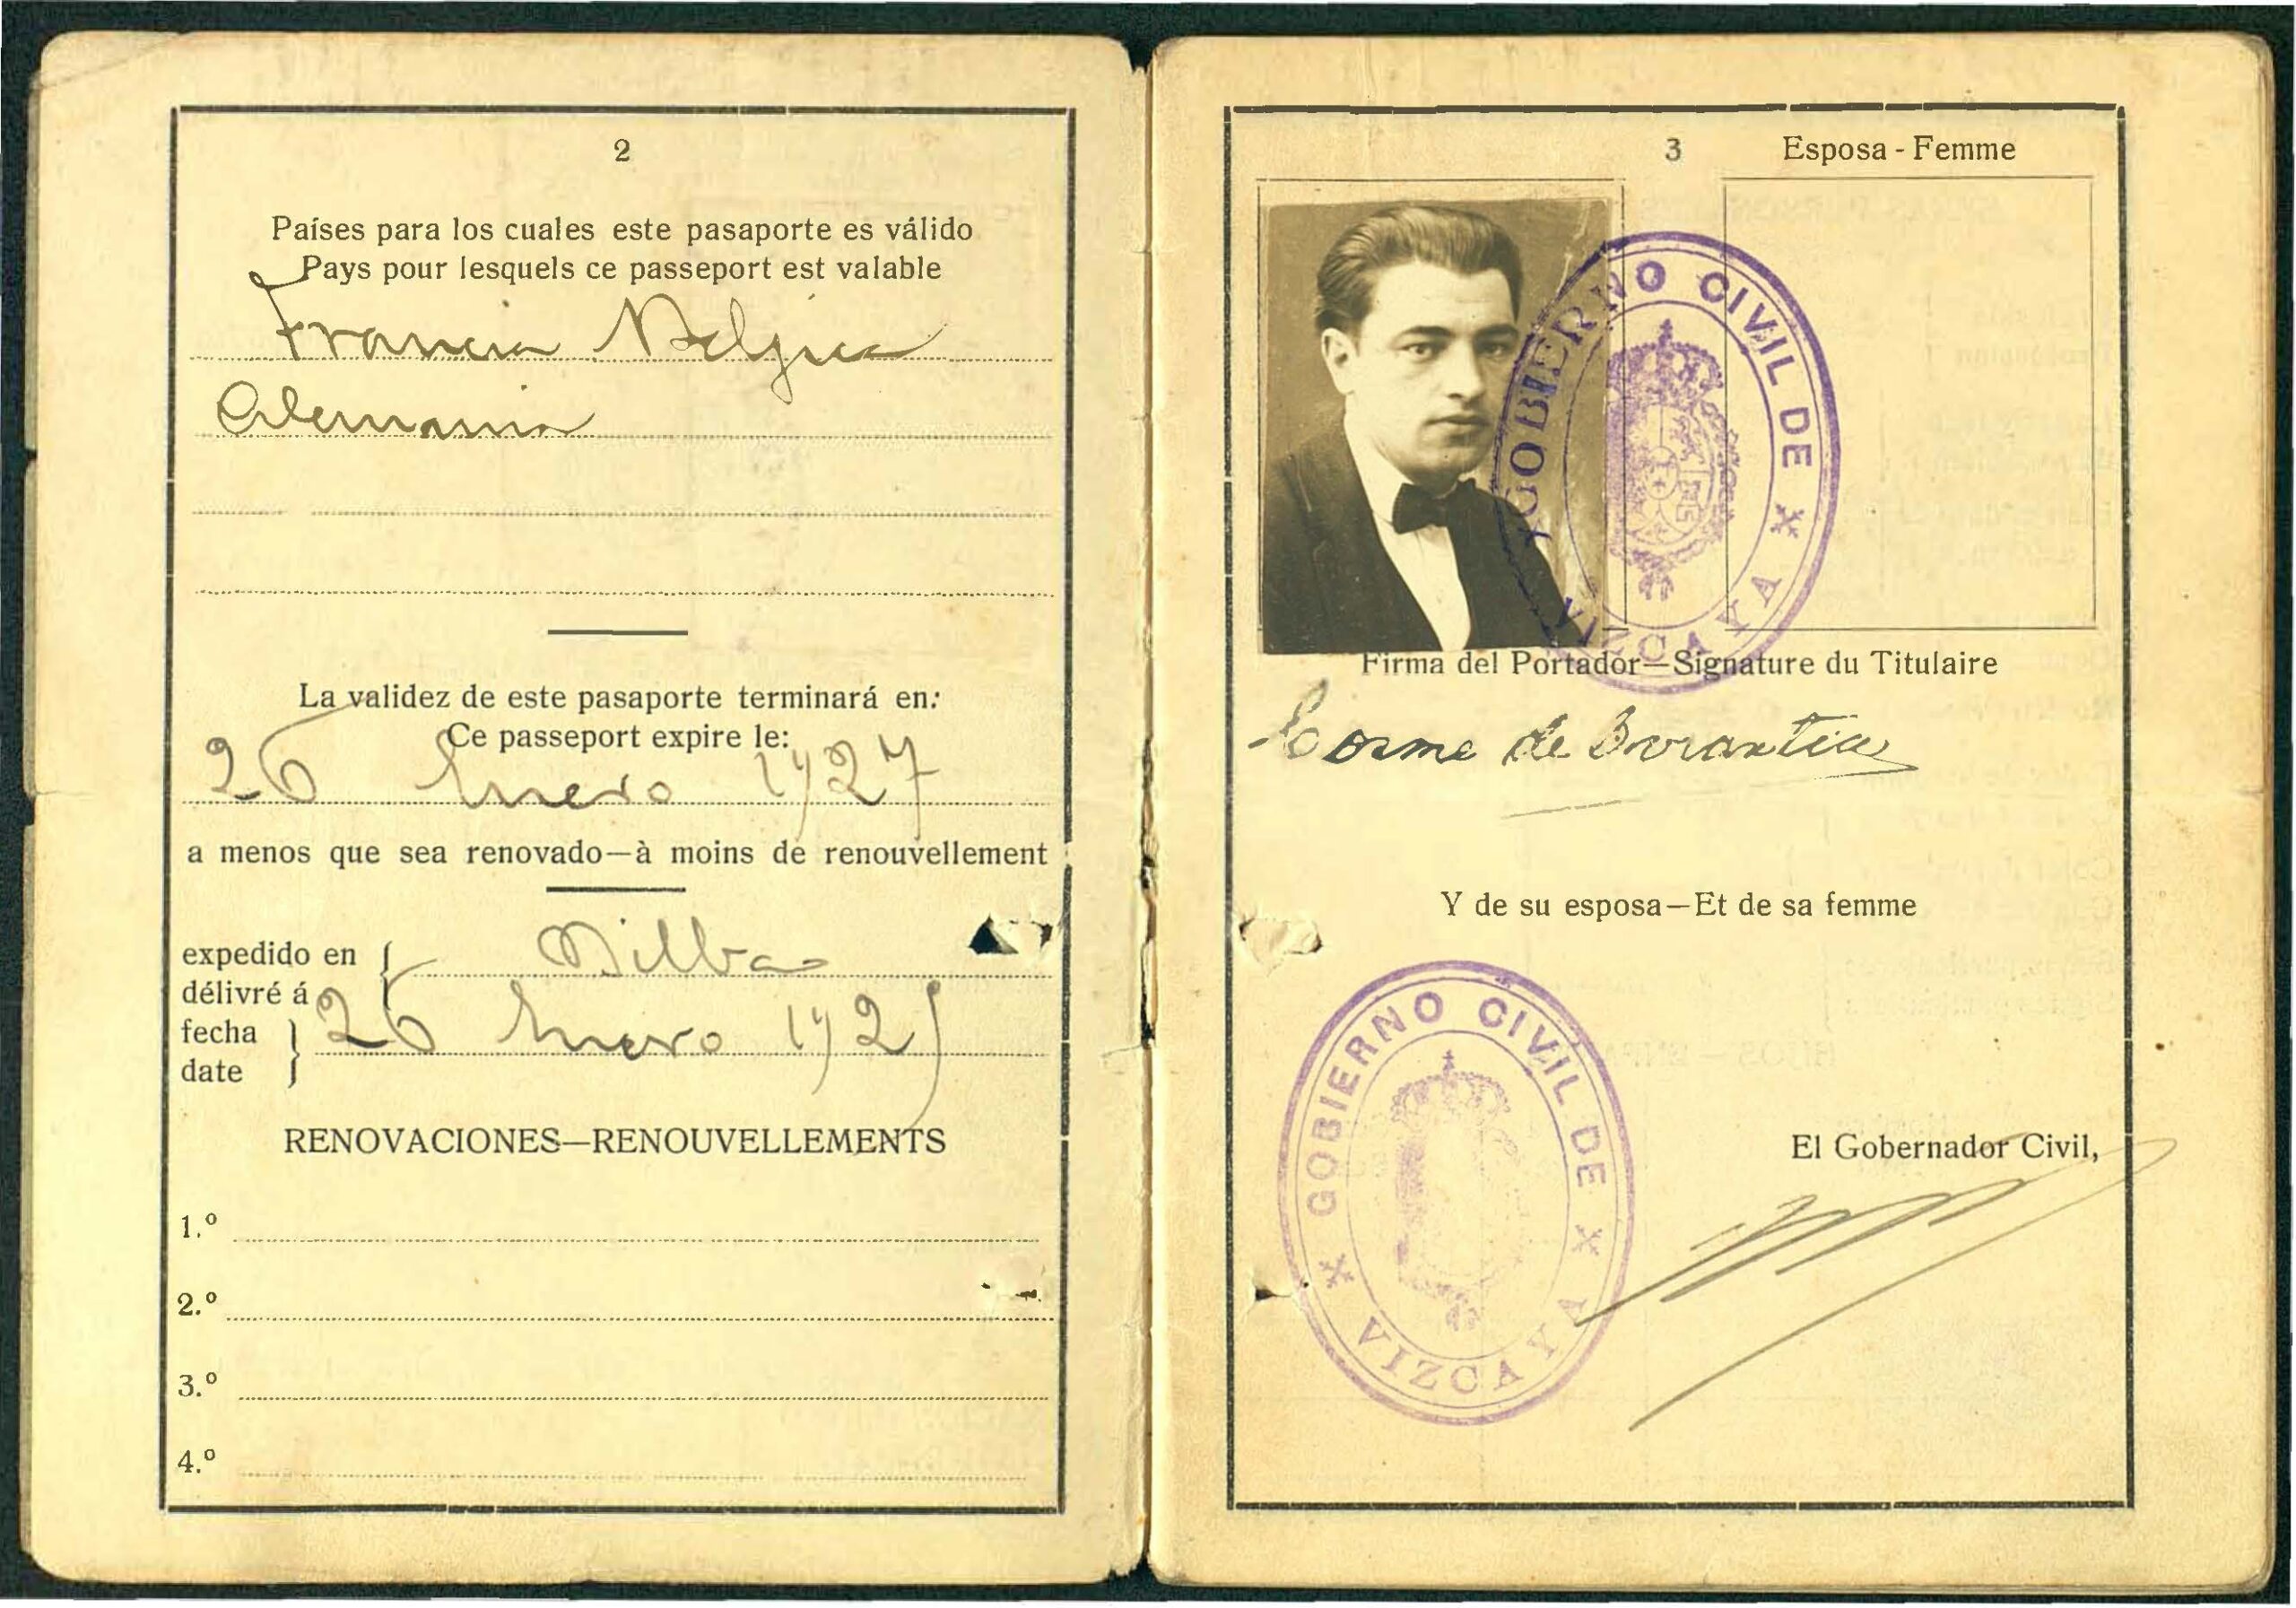 2
Países para los cuales este pasaporte es válido
Pays pour lesquels ce passeport est valable
Francia Belgica
Alemania
La validez de este pasaporte terminará en:
Ce passeport expire le:
26 Enero 1927
a menos que sea renovado—à moins de renouvellement
expedido en
délivré á
Bilbao
fecha
date
26 Enero 1925
RENOVACIONES—RENOUVELLEMENTS
1.º
2.º
3.º
4.º
3
Esposa - Femme
GOBIERNO CIVIL DE
VIZCAYA
Firma del Portador—Signature du Titulaire
Cosme de
Y de su esposa—Et de sa femme
GOBIERNO CIVIL DE
VIZCAYA
El Gobernador Civil,